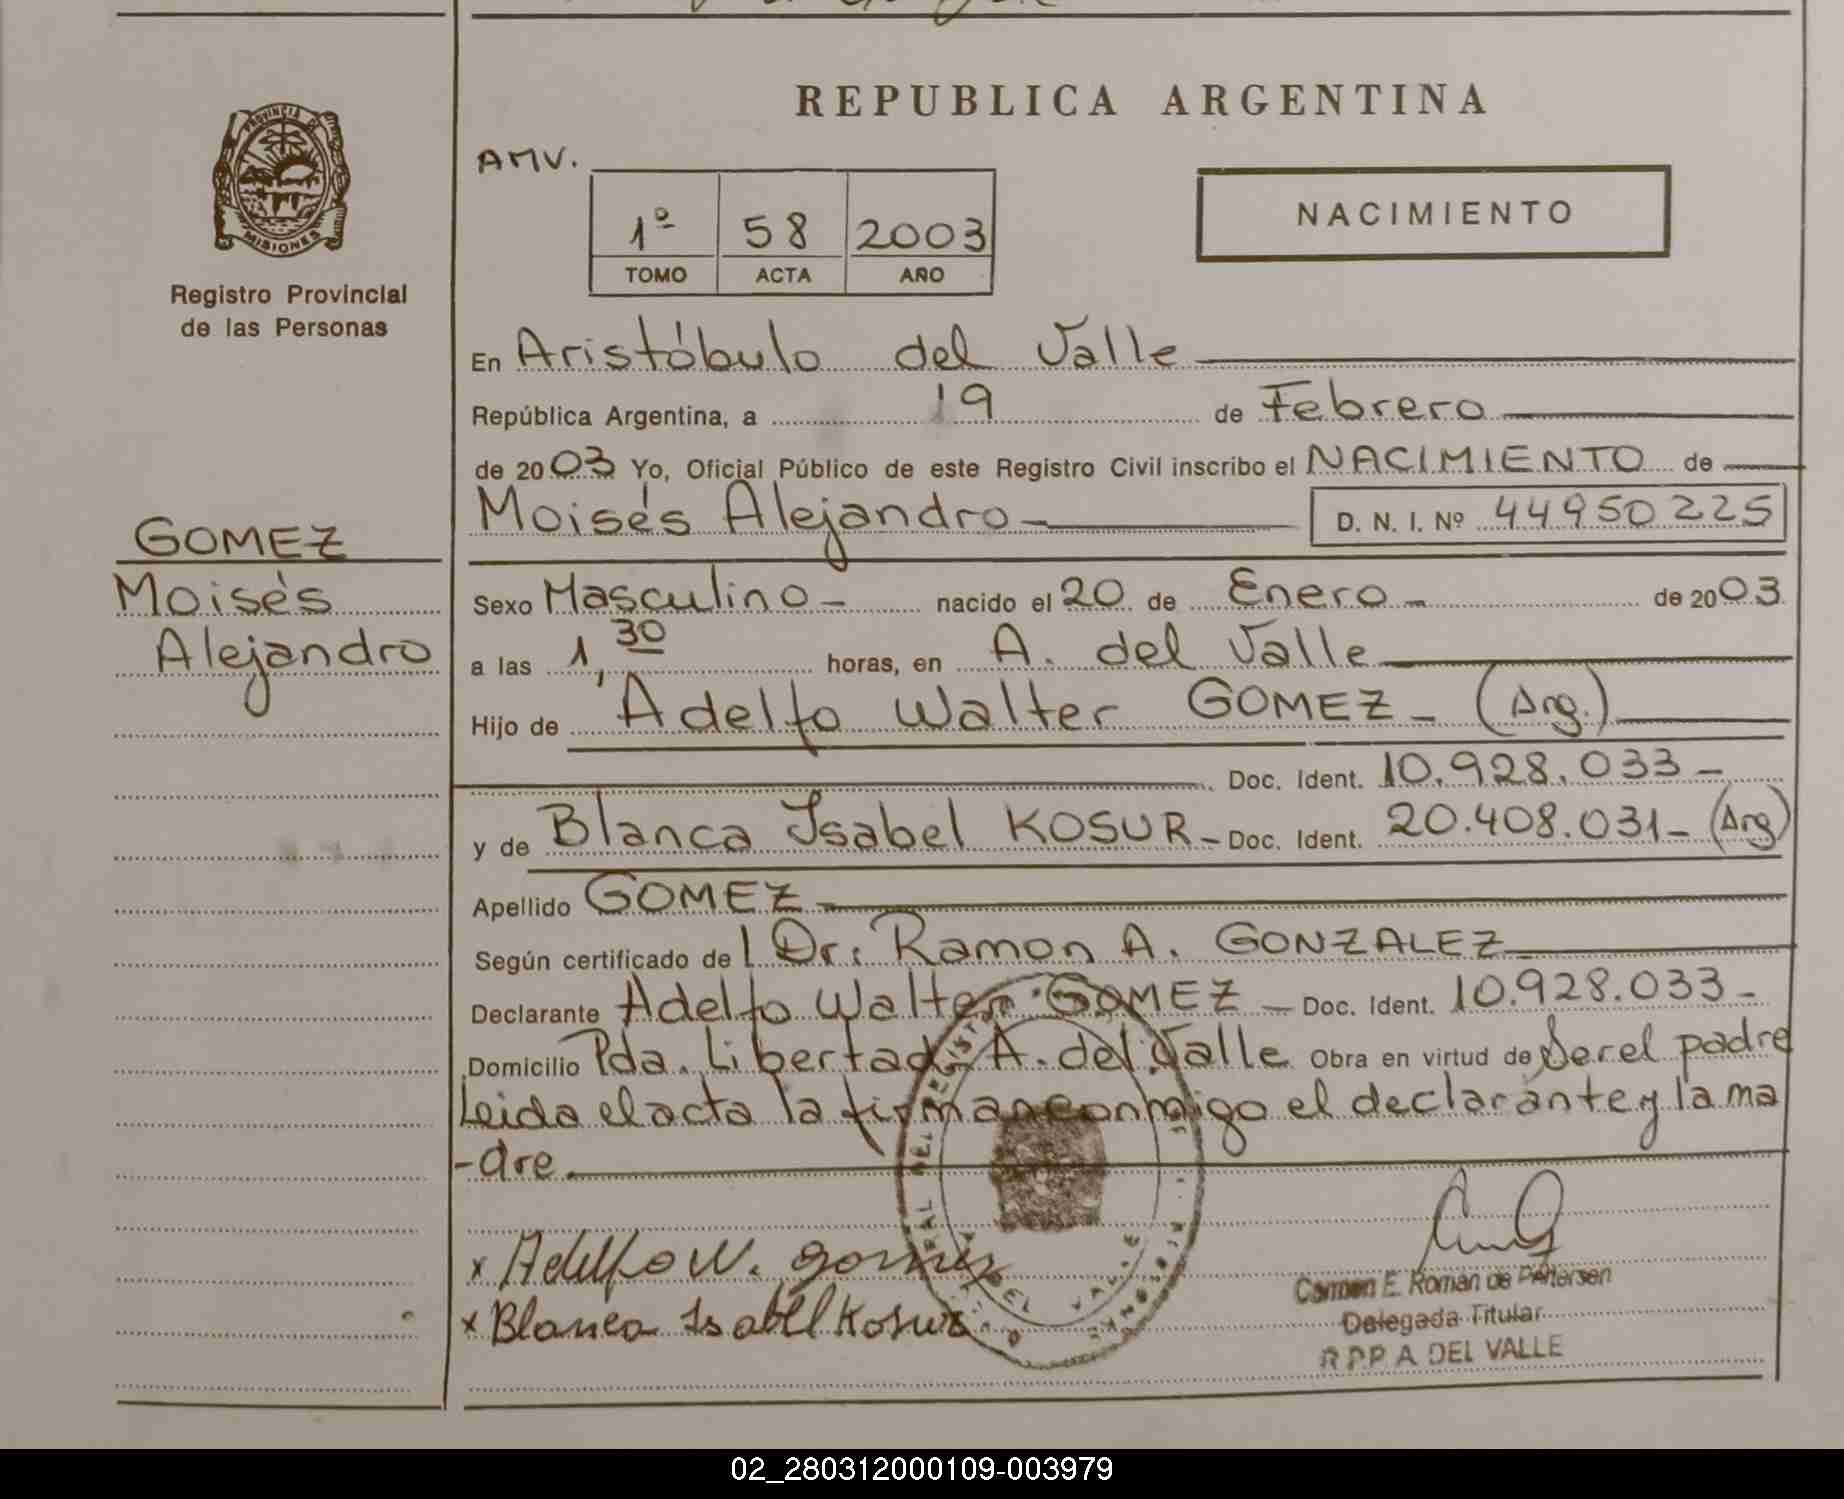 REPUBLICA ARGENTINA
PROVINCIA DE
MISIONES
Registro Provincial
de las Personas
AMV.
1º 58 2003
TOMO ACTA AÑO
NACIMIENTO
En Aristóbulo del Valle
República Argentina, a 19 de Febrero
de 2003 Yo, Oficial Público de este Registro Civil inscribo el NACIMIENTO de
Moisés Alejandro D. N. I. Nº 44950225
GOMEZ
Moisés
Alejandro
Sexo Masculino - nacido el 20 de Enero - de 2003
a las 1,30 horas, en A. del Valle
Hijo de Adelfo Walter GOMEZ - (Arg.)
Doc. Ident. 10.928.033 -
y de Blanca Isabel KOSUR - Doc. Ident. 20.408.031 - (Arg)
Apellido GOMEZ
Según certificado del Dr. Ramon A. GONZALEZ
Declarante Adelfo Walter GOMEZ - Doc. Ident. 10.928.033 -
Domicilio Pda. Libertad A. del Valle Obra en virtud de Ser el padre
Leida el acta la firman conmigo el declarante y la ma
-dre.
x Adelfo W. gomez
x Blanca Isabel Kosur
DEL VALLE
MISIONES
Carmen E. Roman de Petersen
Delegada Titular
R.P.P. A DEL VALLE
02_280312000109-003979